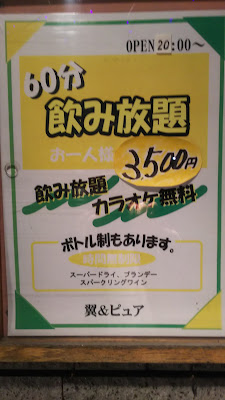 OPEN 20:00～
60分
飲み放題
お一人様
3,500円
飲み放題
カラオケ無料
ボトル制もあります。
時間無制限
スーパードライ、ブランデー
スパークリングワイン
翼&ピュア